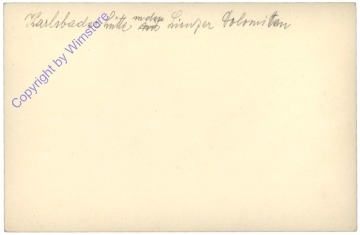 Karlsbader Hütte in den Lienzer Dolomiten
Copyright by Wimstore